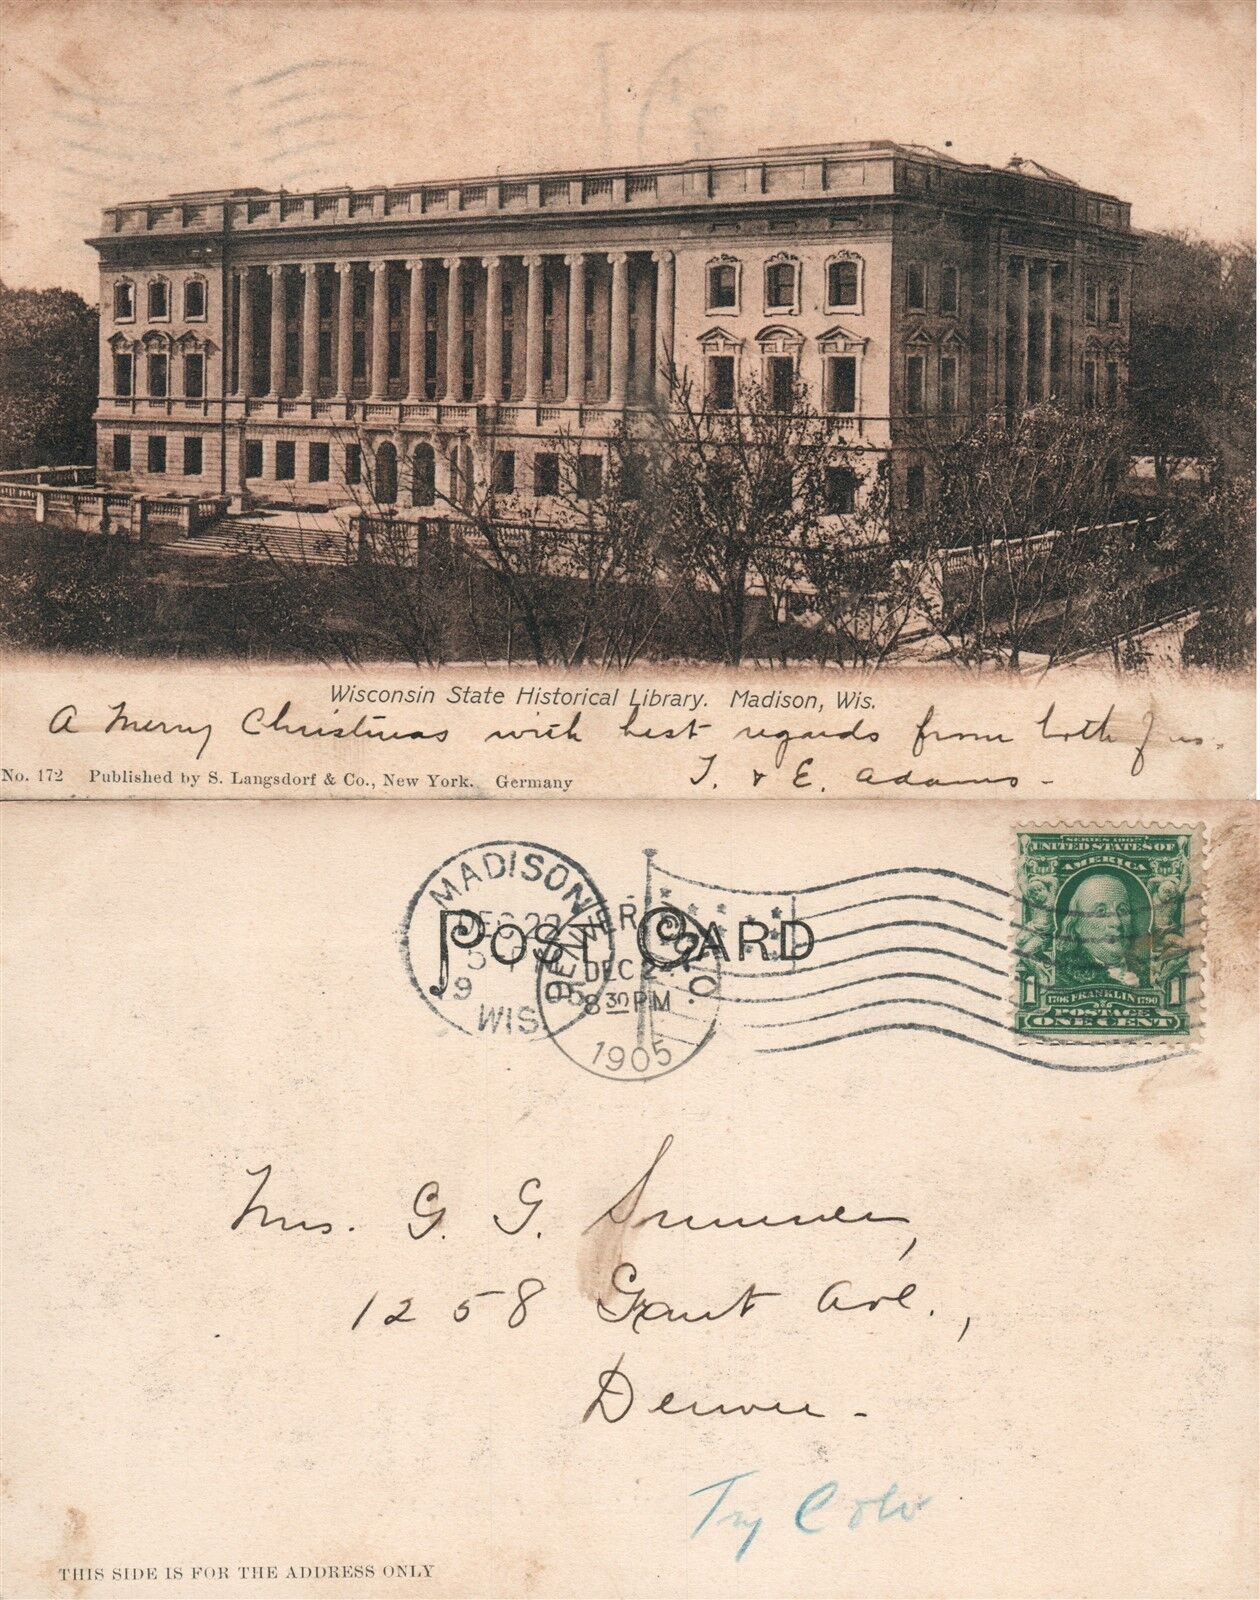 Wisconsin State Historical Library. Madison, Wis.
A Merry Christmas with best regards from both of us.
No. 172 Published by S. Langsdorf & Co., New York. Germany
J. & E. Adams -
MADISON
DEC 22
WIS.
DENVER COLO.
DEC 24
8 30 PM
1905
POST CARD
SERIES 1902
UNITED STATES OF
AMERICA
1 1706 FRANKLIN 1790 1
POSTAGE
ONE CENT
Mrs. G. G. Sumner,
1258 Grant Ave.,
Denver -
Try Colo
THIS SIDE IS FOR THE ADDRESS ONLY